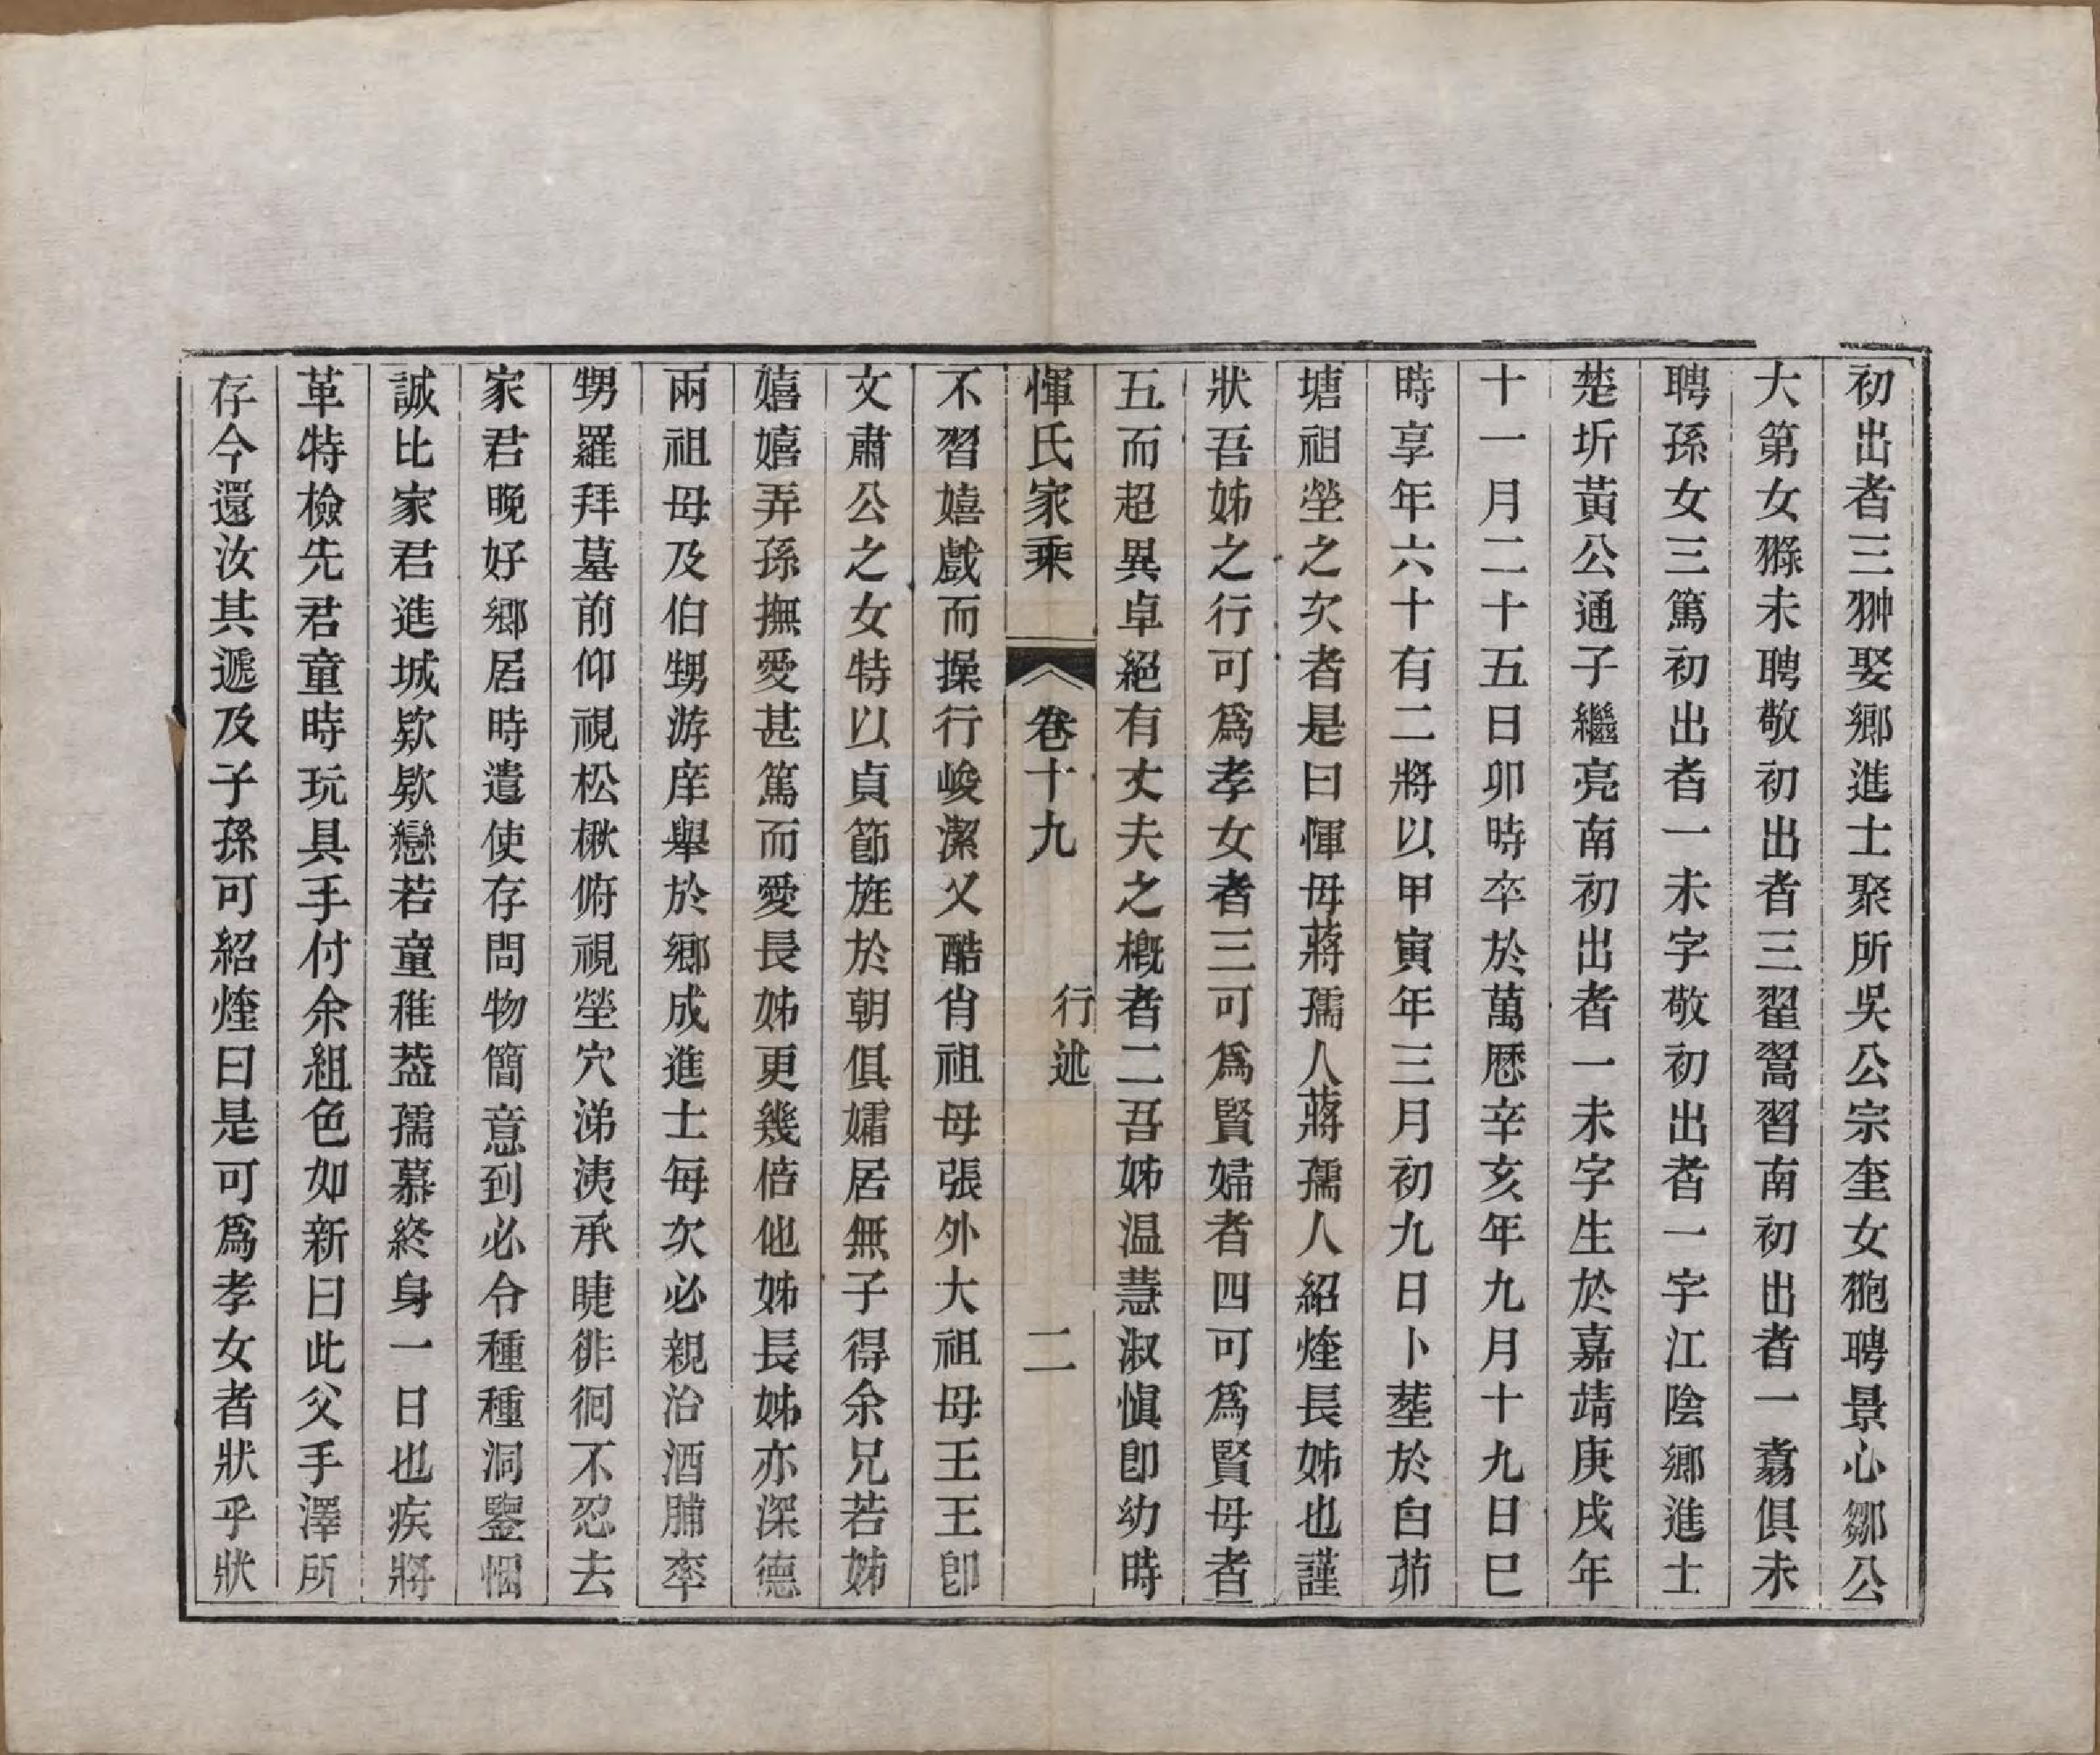 初出者三翀娶鄉進士聚所吳公宗奎女翑聘景心鄒公
大第女䎘未聘敬初出者三翟翯習南初出者一翥俱未
聘孫女三篤初出者一未字敬初出者一字江陰鄉進士
楚圻黃公通子繼亮南初出者一未字生於嘉靖庚戌年
十一月二十五日卯時卒於萬歷辛亥年九月十九日巳
時享年六十有二將以甲寅年三月初九日卜塟於白茆
塘祖塋之次者是曰惲母蔣孺人蔣孺人紹煃長姊也謹
狀吾姊之行可爲孝女者三可爲賢婦者四可爲賢母者
五而超異卓絕有丈夫之概者二吾姊温慧淑愼卽幼時
惲氏家乘 卷十九 行述 二
不習嬉戲而操行峻潔又酷肖祖母張外大祖母王王卽
文肅公之女特以貞節旌於朝俱孀居無子得余兄若姊
嬉嬉弄孫撫愛甚篤而愛長姊更幾倍他姊長姊亦深德
兩祖母及伯甥游庠舉於鄉成進士每次必親治酒脯率
甥羅拜墓前仰視松楸俯視塋穴涕洟承睫徘徊不忍去
家君晚好鄉居時遣使存問物簡意到必令種種洞鑒悃
誠比家君進城欵欵戀若童稚葢孺慕終身一日也疾將
革特檢先君童時玩具手付余組色如新曰此父手澤所
存今還汝其遞及子孫可紹煃曰是可爲孝女者狀乎狀